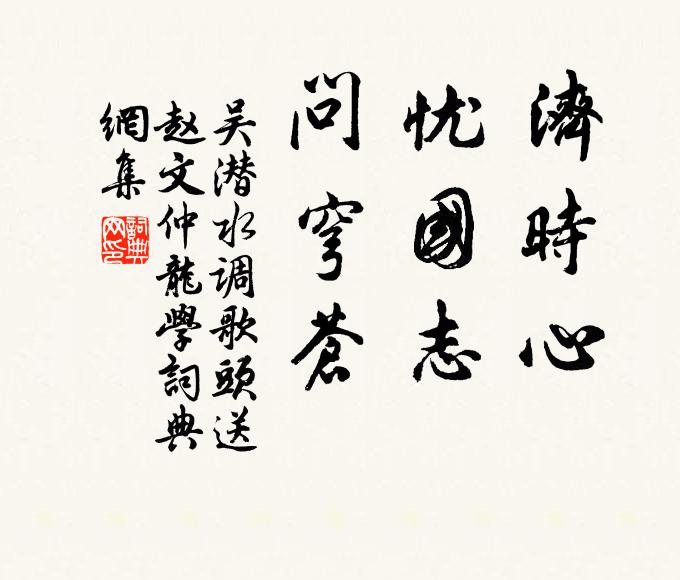 濟時心
忧國志
問穹蒼
吴潜水调歌頭送
赵文仲龍學詞典
網集
詞典
网印